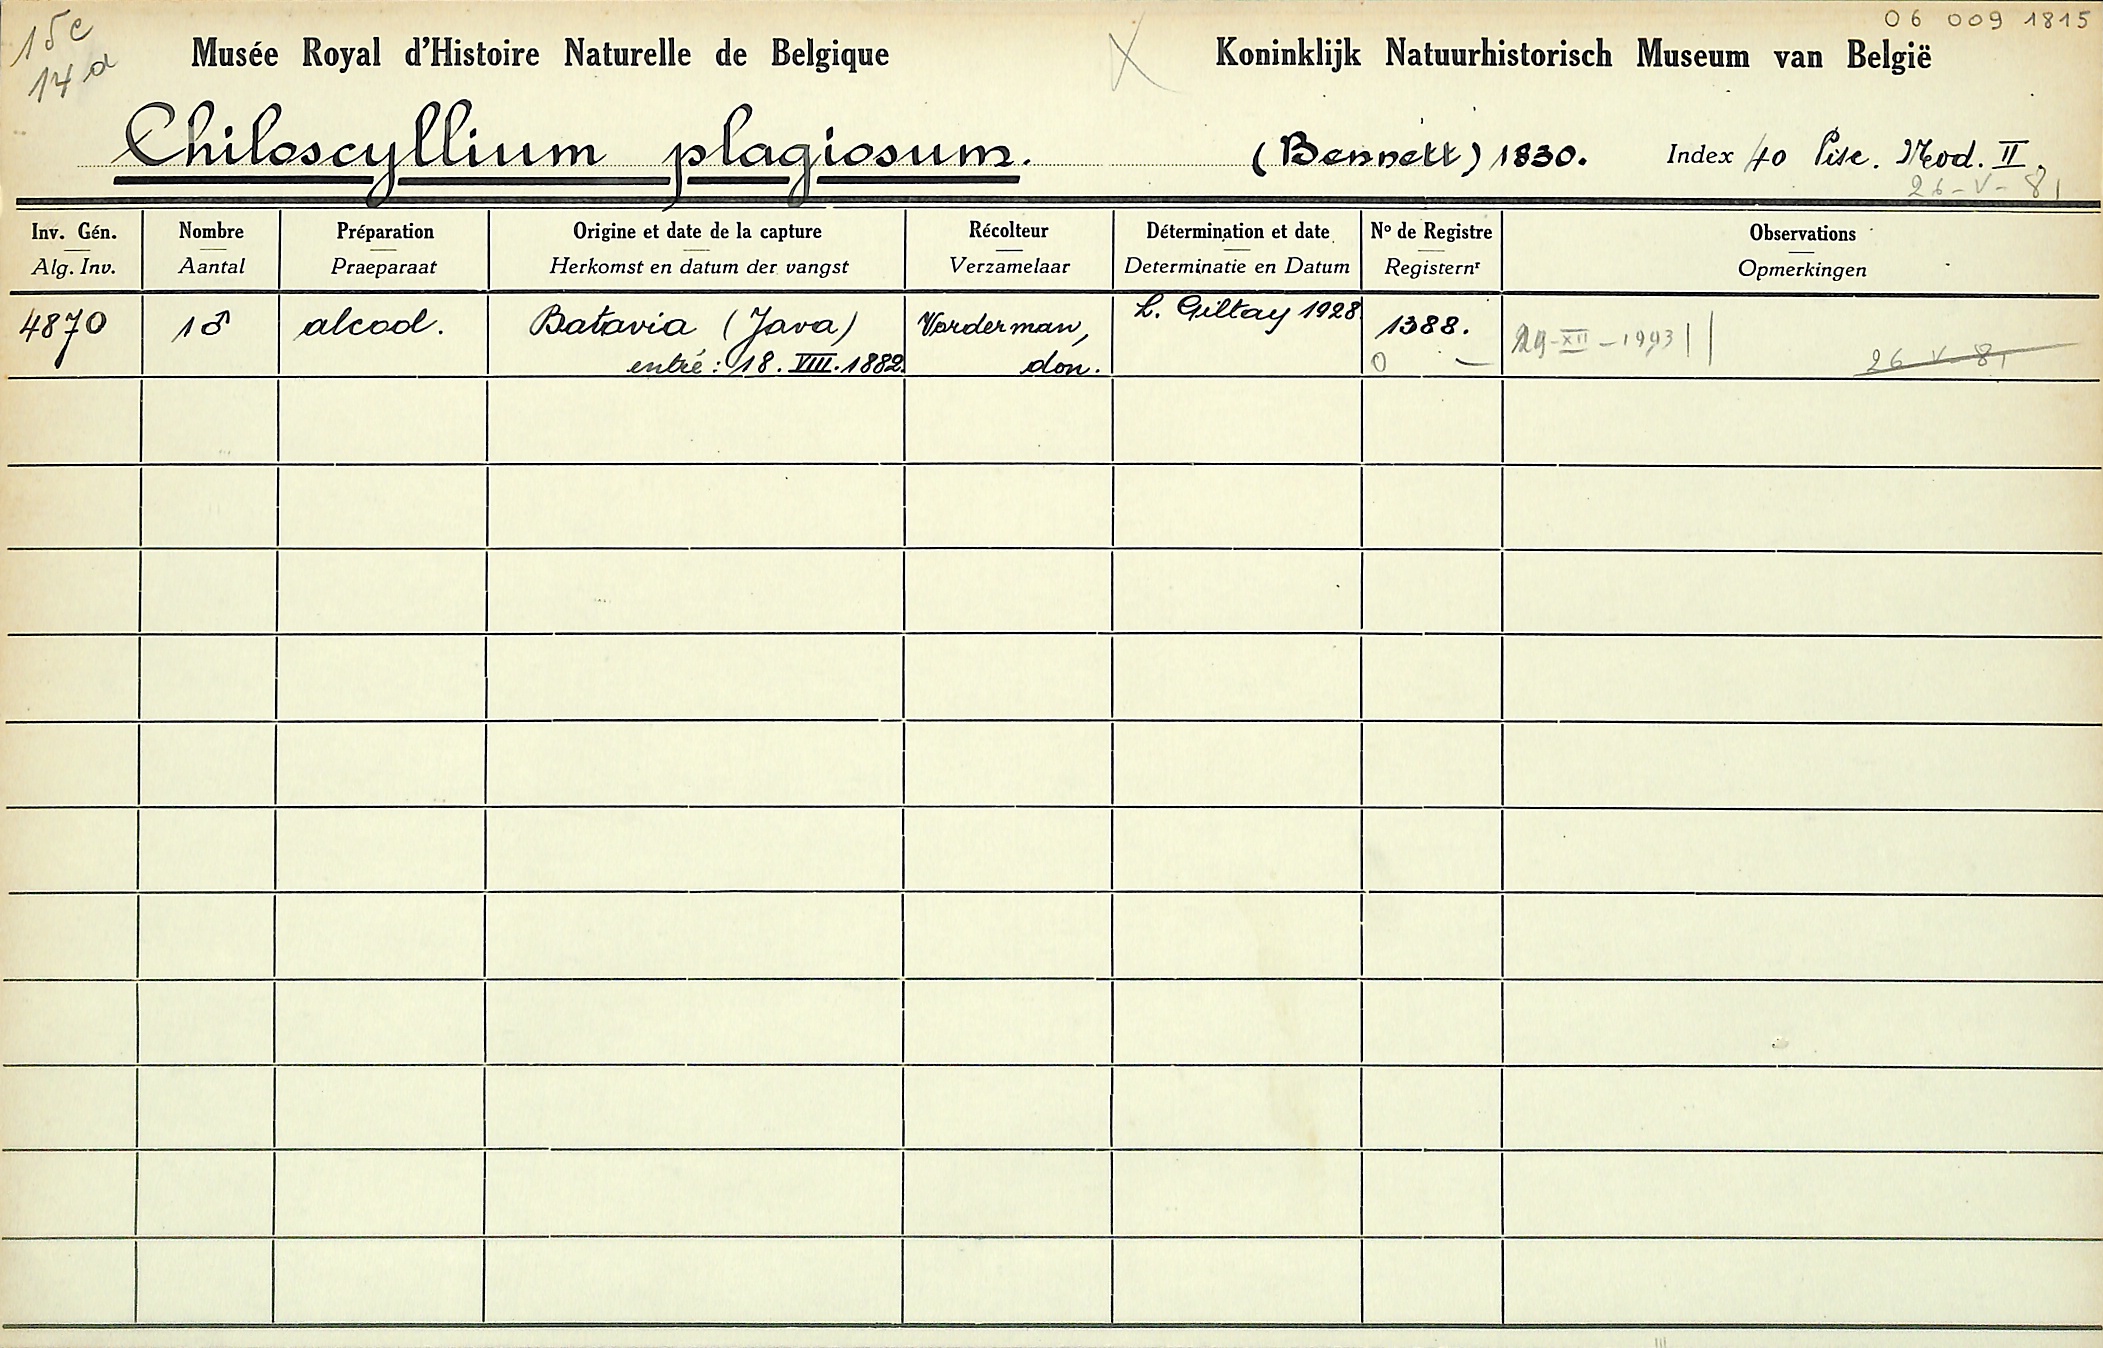 15c
14d
06 009 1815
Musée Royal d'Histoire Naturelle de Belgique
Koninklijk Natuurhistorisch Museum van België
Chiloscyllium plagiosum. (Bennett) 1830. Index 40 Pisc. Mod. II.
26-V-81
Inv. Gén. Nombre Préparation Origine et date de la capture Récolteur Détermination et date Nº de Registre Observations
Alg. Inv. Aantal Praeparaat Herkomst en datum der vangst Verzamelaar Determinatie en Datum Registernr Opmerkingen
4870 1♂ alcool. Batavia (Java) Vorderman, L. Giltay 1928 1388. 29-XII-1993
entré: 18. VIII. 1882. don. 0 – 26 V 81